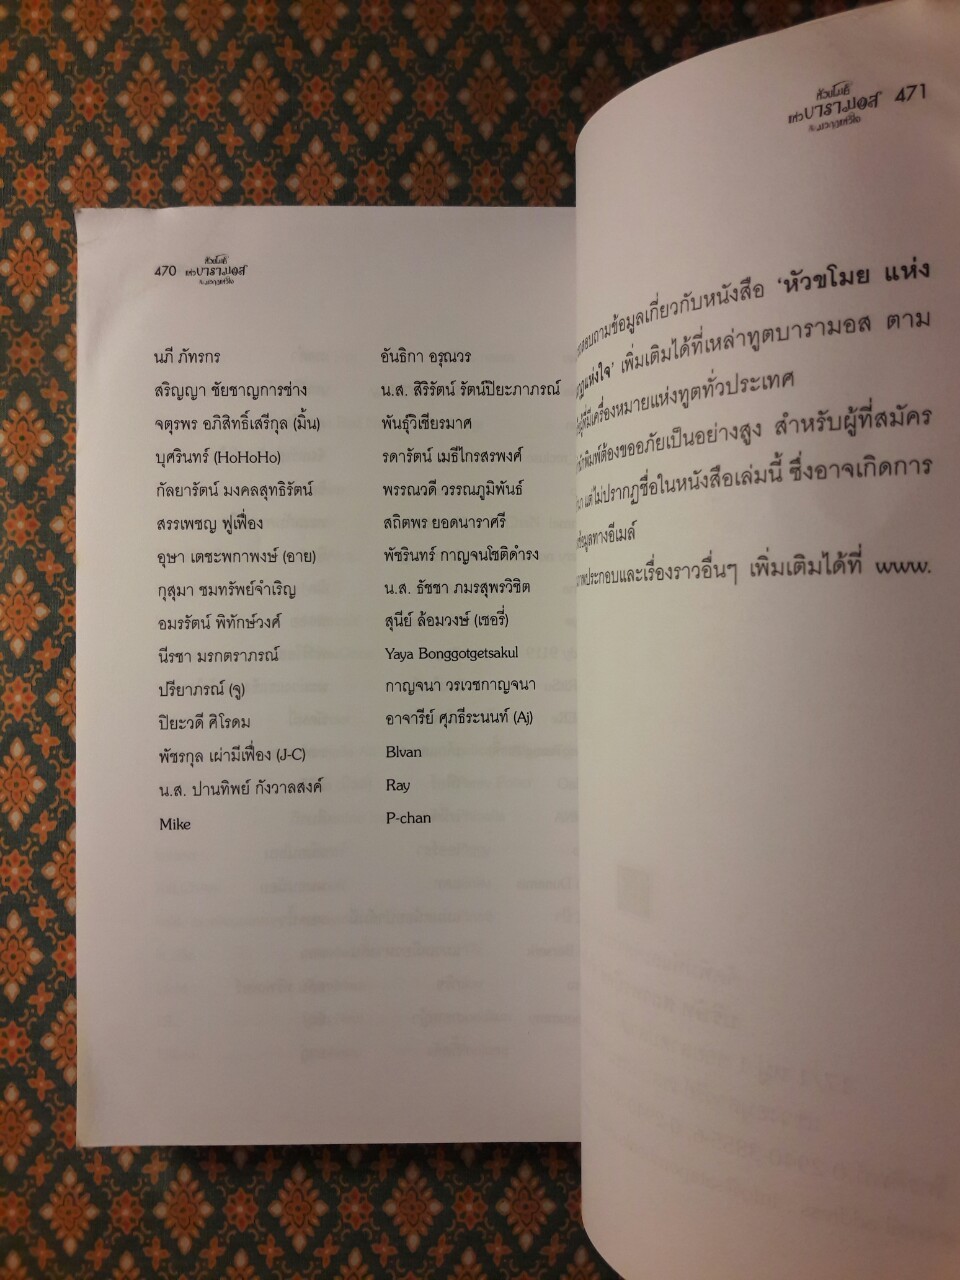 470 หัวขโมย
แห่งบารามอส
นภี ภัทรกร
สริญญา ชัยชาญการช่าง
จตุรพร อภิสิทธิ์เสรีกุล (มิ้น)
บุศรินทร์ (HoHoHo)
กัลยารัตน์ มงคลสุทธิรัตน์
สรรเพชญ ฟูเฟื่อง
อุษา เตชะพกาพงษ์ (อาย)
กุสุมา ชมทรัพย์จำเริญ
อมรรัตน์ พิทักษ์วงศ์
นีรชา มรกตราภรณ์
ปรียาภรณ์ (จู)
ปิยะวดี ศิโรดม
พัชรกุล เผ่ามีเฟื่อง (J-C)
น.ส. ปานทิพย์ กังวาลสงค์
Mike
อันธิกา อรุณวร
น.ส. สิริรัตน์ รัตน์ปิยะภาภรณ์
พันธุ์วิเชียรมาศ
รดารัตน์ เมธีไกรสรพงศ์
พรรณวดี วรรณภูมิพันธ์
สถิตพร ยอดนาราศรี
พัชรินทร์ กาญจนโชติดำรง
น.ส. ธัชชา ภมรสุพรวิชิต
สุนีย์ ล้อมวงษ์ (เชอรี่)
Yaya Bonggotgetsakul
กาญจนา วรเวชกาญจนา
อาจารีย์ ศุภธีระนนท์ (Aj)
Blvan
Ray
P-chan
หัวขโมย
แห่งบารามอส 471
สอบถามข้อมูลเกี่ยวกับหนังสือ 'หัวขโมย แห่ง
แห่งใจ' เพิ่มเติมได้ที่เหล่าทูตบารามอส ตาม
ที่มีเครื่องหมายแห่งทูตทั่วประเทศ
พิมพ์ต้องขออภัยเป็นอย่างสูง สำหรับผู้ที่สมัคร
แต่ไม่ปรากฏชื่อในหนังสือเล่มนี้ ซึ่งอาจเกิดการ
ข้อมูลทางอีเมล์
ประกอบและเรื่องราวอื่นๆ เพิ่มเติมได้ที่ www.